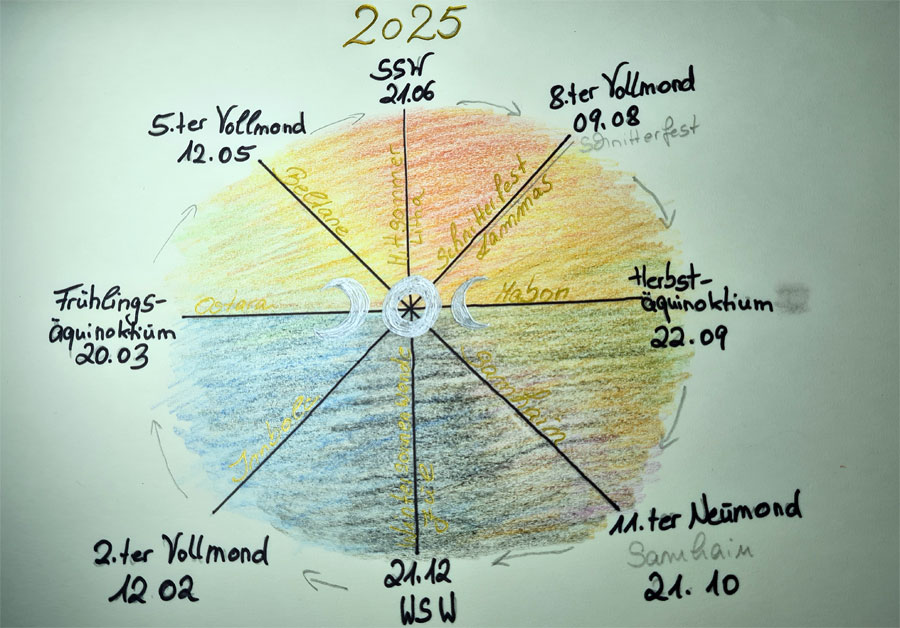 2025
SSW
21.06
8.ter Vollmond
09.08
Schnitterfest
5.ter Vollmond
12.05
Beltane
Litha
Schnitterfest
Lammas
Frühlings-
äquinoktium
20.03
Ostara
Mabon
Herbst-
äquinoktium
22.09
Imbolc
Wintersonnenwende
Samhain
2.ter Vollmond
12 02
21.12
WSW
11.ter Neumond
Samhain
21. 10